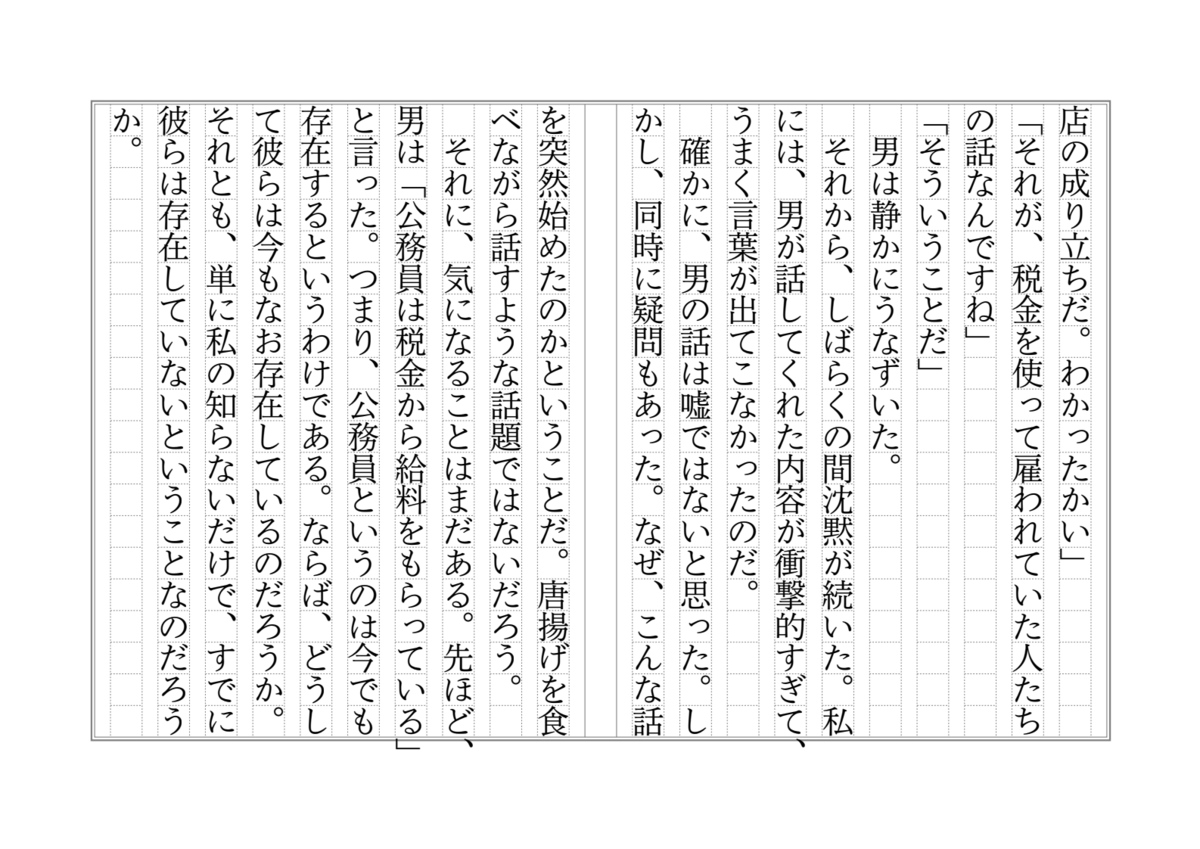 店の成り立ちだ。わかったかい」
「それが、税金を使って雇われていた人たち
の話なんですね」
「そういうことだ」
　男は静かにうなずいた。
　それから、しばらくの間沈黙が続いた。私
には、男が話してくれた内容が衝撃的すぎて、
うまく言葉が出てこなかったのだ。
　確かに、男の話は嘘ではないと思った。し
かし、同時に疑問もあった。なぜ、こんな話
を突然始めたのかということだ。唐揚げを食
べながら話すような話題ではないだろう。
　それに、気になることはまだある。先ほど、
男は「公務員は税金から給料をもらっている」
と言った。つまり、公務員というのは今でも
存在するというわけである。ならば、どうし
て彼らは今もなお存在しているのだろうか。
それとも、単に私の知らないだけで、すでに
彼らは存在していないということなのだろう
か。